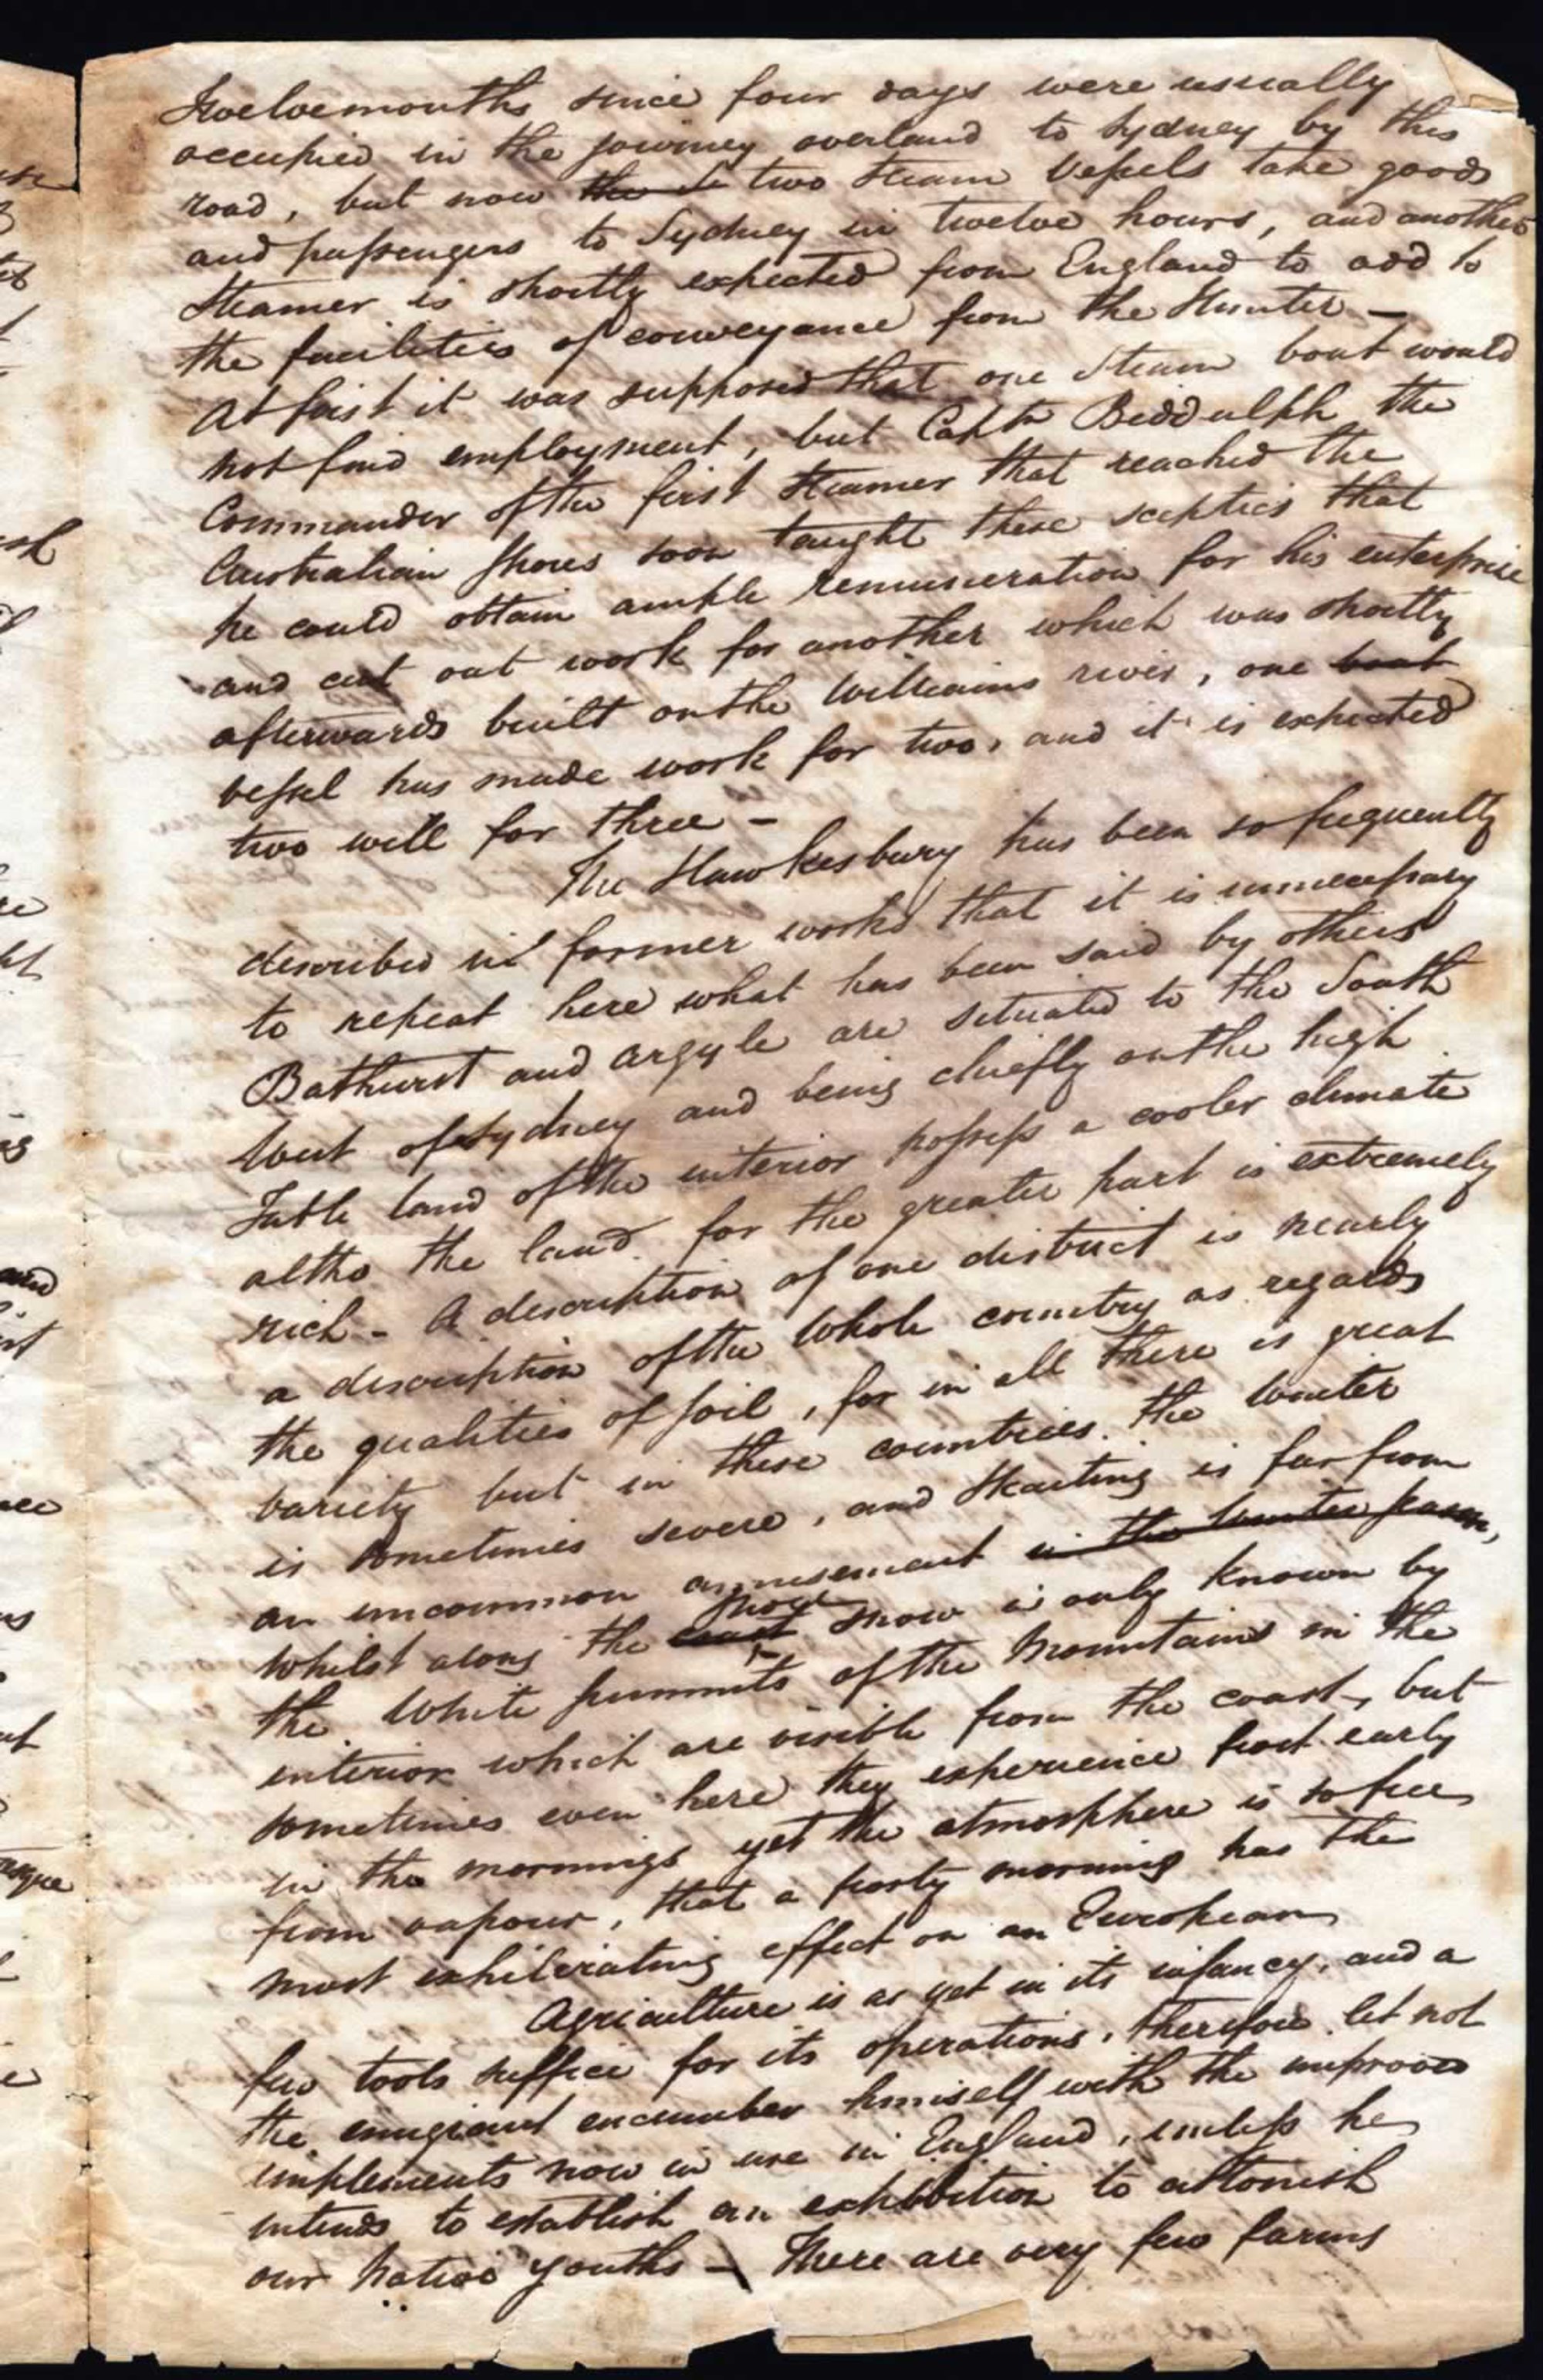 Twelvemonths since four days were usually
occupied in the journey overland to Sydney by this
road, but now the two steam vessels take goods
and passengers to Sydney in twelve hours, and another
Steamer is shortly expected from England to add to
the facilities of conveyance from the Hunter –
At first it was supposed that one Steam boat would
not find employment, but Captn Biddulph the
Commander of the first Steamer that reached the
Australian shores soon taught these sceptics that
he could obtain ample remuneration for his enterprise
and cut out work for another which was shortly
afterwards built on the Williams river, one boat
vessel has made work for two, and it is expected
two will for three –
The Hawkesbury has been so frequently
described in former works that it is unnecessary
to repeat here what has been said by others
Bathurst and Argyle are situated to the South
West of Sydney and being chiefly on the high
Table land of the interior possess a cooler climate
altho the land for the greater part is extremely
rich – A description of one district is nearly
a description of the whole country as regards
the qualities of soil, for in all there is great
variety but in these countries. the Winter
is sometimes severe, and Skaiting is far from
an uncommon amusement in the winter season,
shore
Whilst along the coast snow is only known by
the White summits of the Mountains in the
interior which are visible from the coast, but
sometimes even here they experience frost early
in the mornings yet the atmosphere is so free
from vapour, that a frosty morning has the
most exhilirating effect on an European
Agriculture is as yet in its infancy, and a
few tools suffice for its operations, therefore let not
the emigrant encumber himself with the improved
implements now in use in England, unless he
intends to establish an exhibition to astonish
our Native Youths – There are very few farms